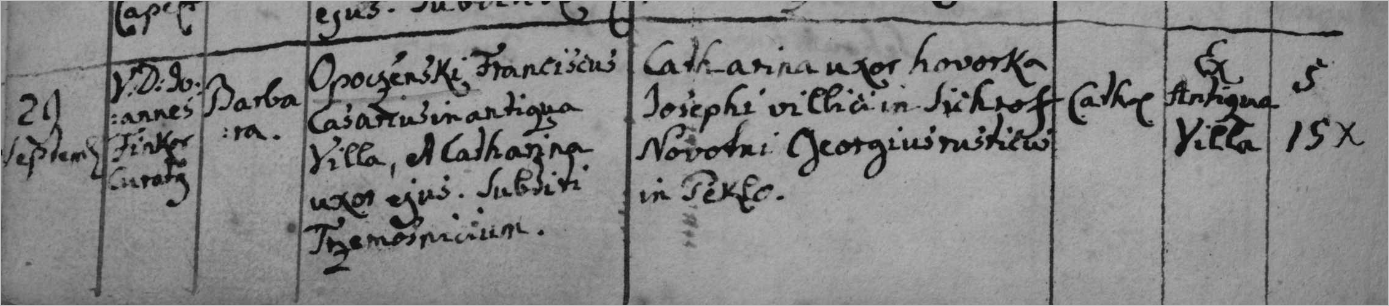 ejus.
29
Septem
V: D: Jo:
:annes
Finker
Curatg
Barba
:ra.
Opoczenski Franciscus
Casarius in antiqua
Villa, et Catharina
uxor ejus. Subditi
Trzemosnicium.
Catharina uxor hovorka
Josephi villici in
Novotni Georgius rusticus
in Peklo.
Cath
Ex
Antiqua
Villa
5
15 X